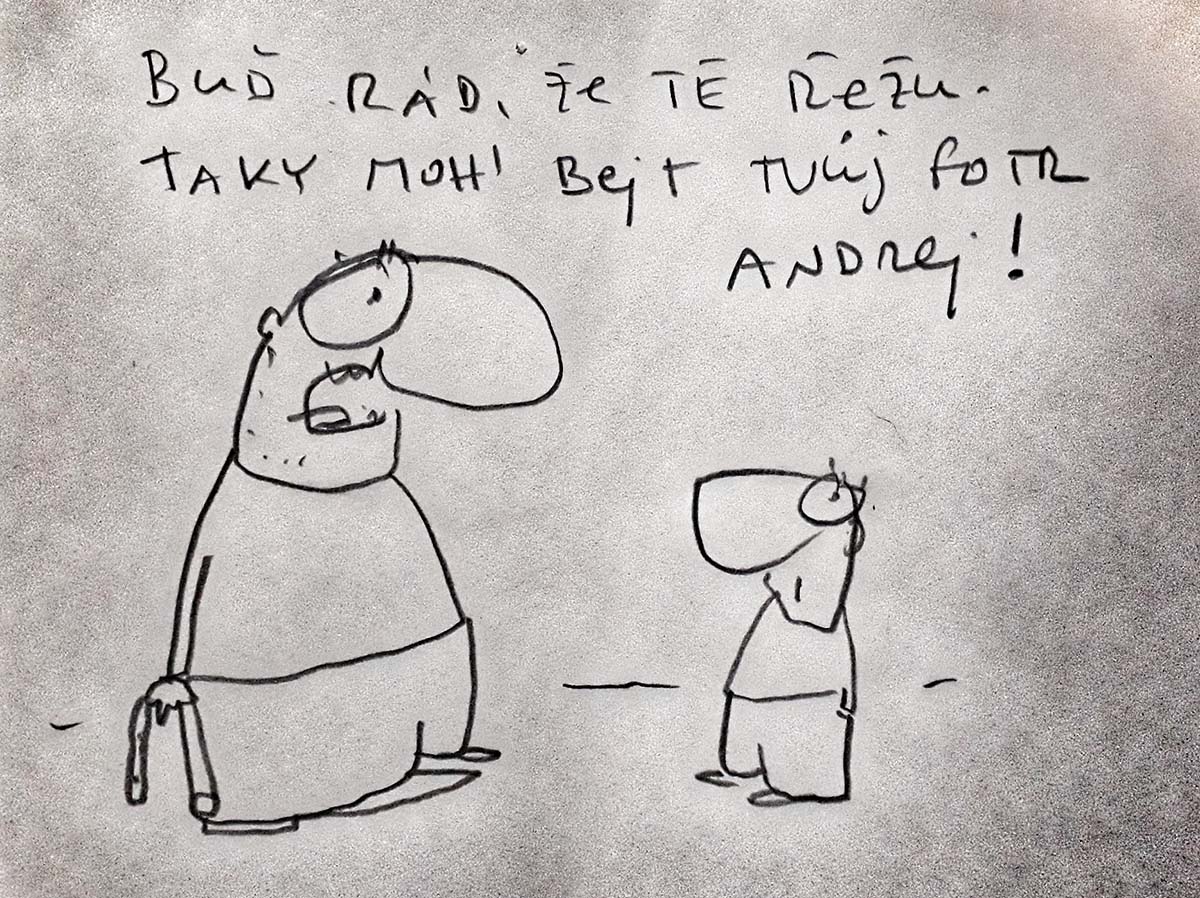 BUĎ RÁD, že TĚ ŘeŽu.
TAKY MOH' Bejt TVůj FOTR
ANDRej!